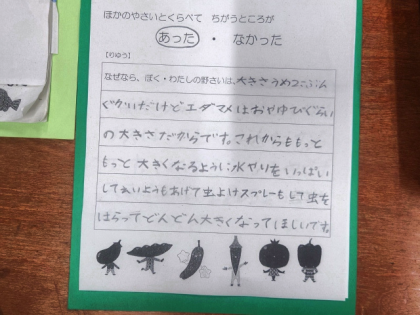 ほかのやさいとくらべて ちがうところが
あった ・ なかった
【りゆう】
なぜなら、ぼく・わたしの野さいは、大きさ
ぐらいだけどエダマメはおやゆびぐらい
の大きさだからです。これからももっと
もっと大きくなるように水やりをいっぱい
してえいようもあげて虫よけスプレーもして虫を
はらってどんどん大きくなってほしいです。